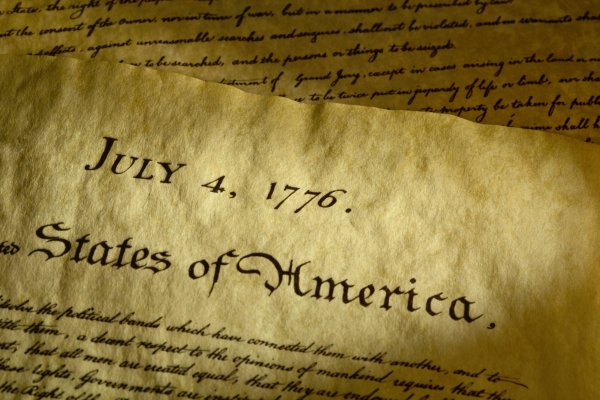 State, the right of the people
but the consent of the owner, nor in time of war, but in a manner to be prescribed by law.
effects, against unreasonable searches and seizures, shall not be violated, and no warrants shall
to be searched, and the persons or things to be seized.
of Grand Jury, except in cases arising in the land or
to be twice put in jeopardy of life or limb, nor sha
property be taken for publ
shall
JULY 4, 1776.
States of America,
dissolve the political bands which have connected them with another, and to
them, a decent respect to the opinions of mankind requires that
that all men are created equal, that they are
rights, Governments are
the Right of